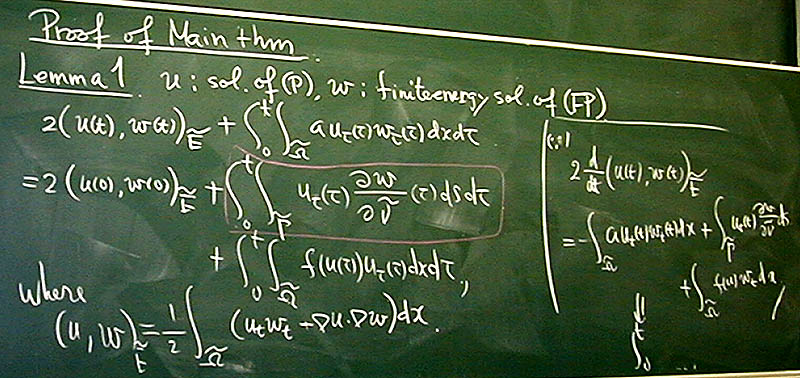 Proof of Main thm
Lemma 1. u : sol. of (P), w : finite energy sol. of (FP)
2(u(t), w(t))_Ẽ + ∫_0^t ∫_Ω̃ a u_τ(τ) w_τ(τ) dx dτ
= 2(u(0), w(0))_Ẽ + ∫_0^t ∫_Γ̃ u_τ(τ) ∂w/∂ν̃ (τ) dS dτ
+ ∫_0^t ∫_Ω̃ f(u(τ)) u_τ(τ) dx dτ,
where
(u, w)_Ẽ = 1/2 ∫_Ω̃ (u_t w_t + ∇u·∇w) dx.
(∵)
2 d/dt (u(t), w(t))_Ẽ
= -∫_Ω̃ a u_t(t) w_t(t) dx + ∫_Γ̃ u_t(t) ∂w/∂ν̃ dS
+ ∫_Ω̃ f(u) w_t dx,
⇓
∫_0^t ...